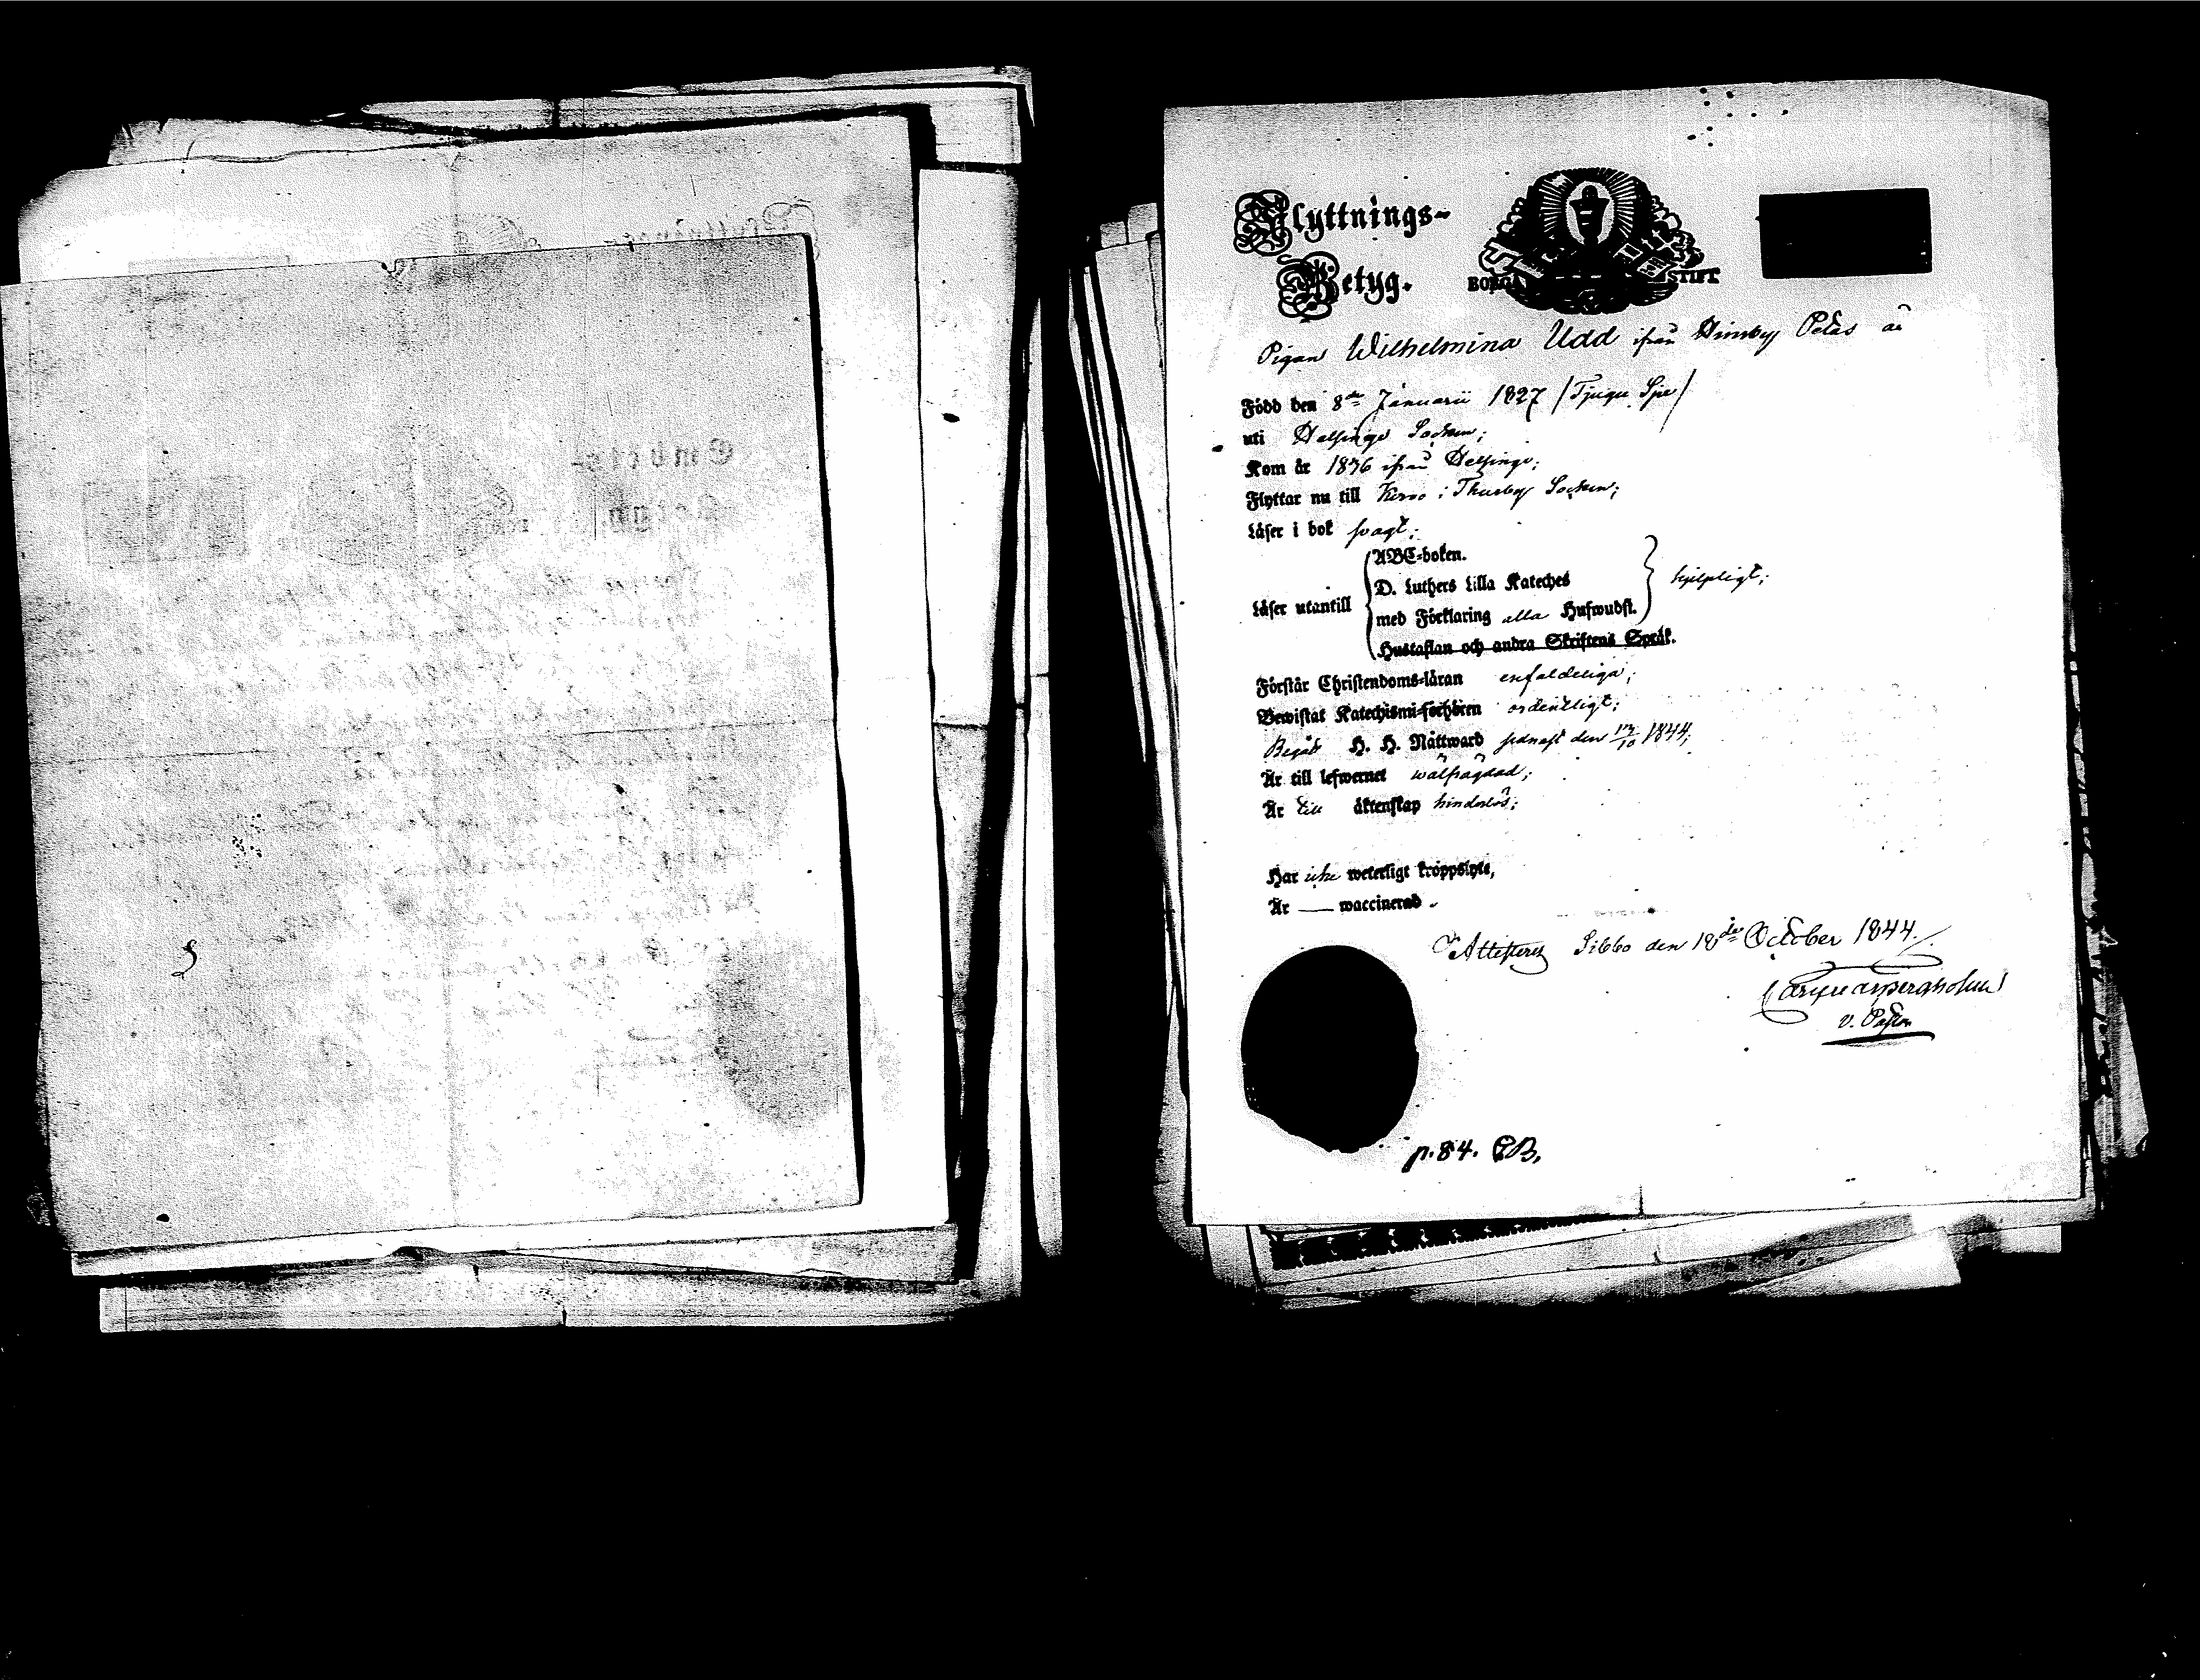 Flyttnings-
Betyg.
BORGÅ STIFT
Pigan Wilhelmina Udd ifrån Hinsby Petas är
Född den 8de Januarii 1827 /Tjugu Sju/
uti Helsinge Socken;
Kom år 1836 ifrån Helsinge;
Flyttar nu till Kervo i Thusby Socken;
Läser i bok svagt;
ABC-boken.
D. Luthers Lilla Kateches
Läser utantill
med Förklaring alla Hufwudst.
hjelpligt;
Hustaflan och andra Skriftens Språk.
Förstår Christendoms-läran enfaldeliga;
Bewistat Katechismi-förhören ordentligt;
Begått H. H. Nattward sednast den 1844;
Är till lefwernet wälfrägdad;
Är till äktenskap hinderlös;
Har icke weterligt kroppslyte,
Är — waccinerad.
Attesterar Sibbo den 18de October 1844.
v. Pastor
p. 84. CB,